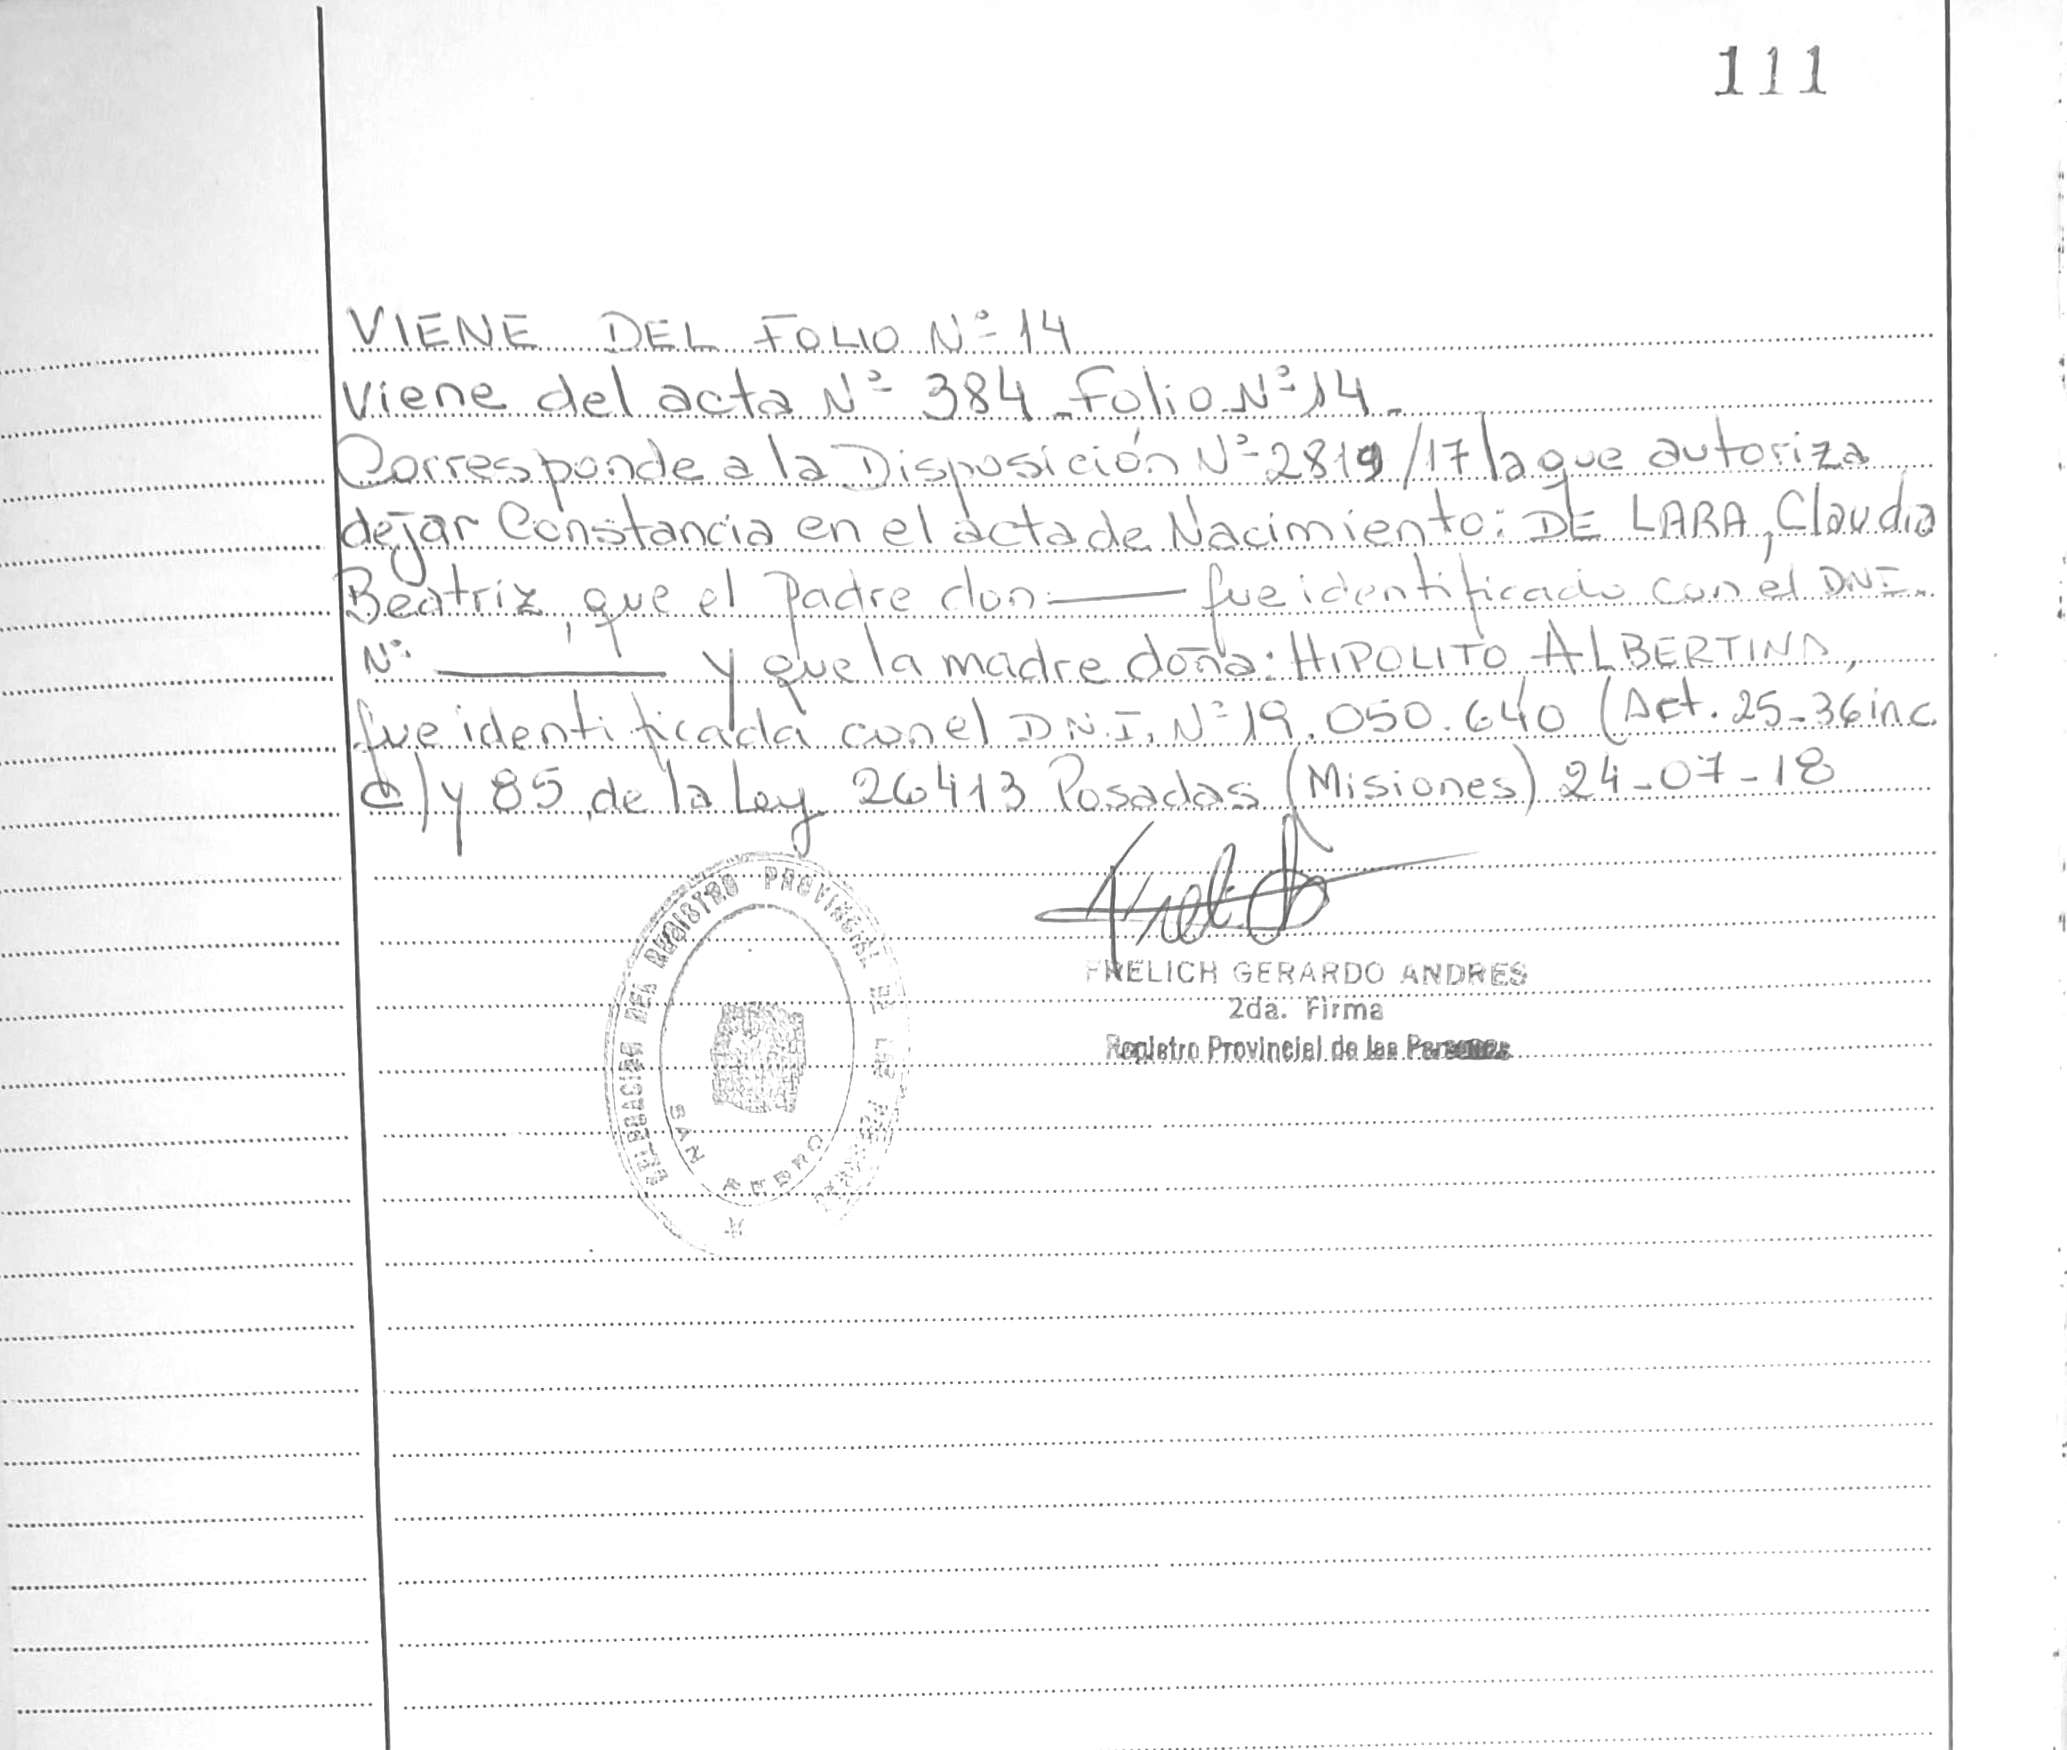 111
VIENE DEL FOLIO Nº 14
Viene del acta Nº 384 - Folio Nº 14 -
Corresponde a la Disposición Nº 2819/17 la que autoriza
dejar Constancia en el acta de Nacimiento: DE LARA, Claudia
Beatriz, que el Padre don: —— fue identificado con el DNI.
Nº: —— y que la madre doña: HIPOLITO ALBERTINA,
fue identificada con el D.N.I. Nº 19.050.640 (Art. 25-36 inc
c) y 85 de la Ley 26413 Posadas (Misiones) 24-07-18
DELEGACION DEL REGISTRO PROVINCIAL DE LAS PERSONAS
SAN PEDRO
FRELICH GERARDO ANDRES
2da. Firma
Registro Provincial de las Personas